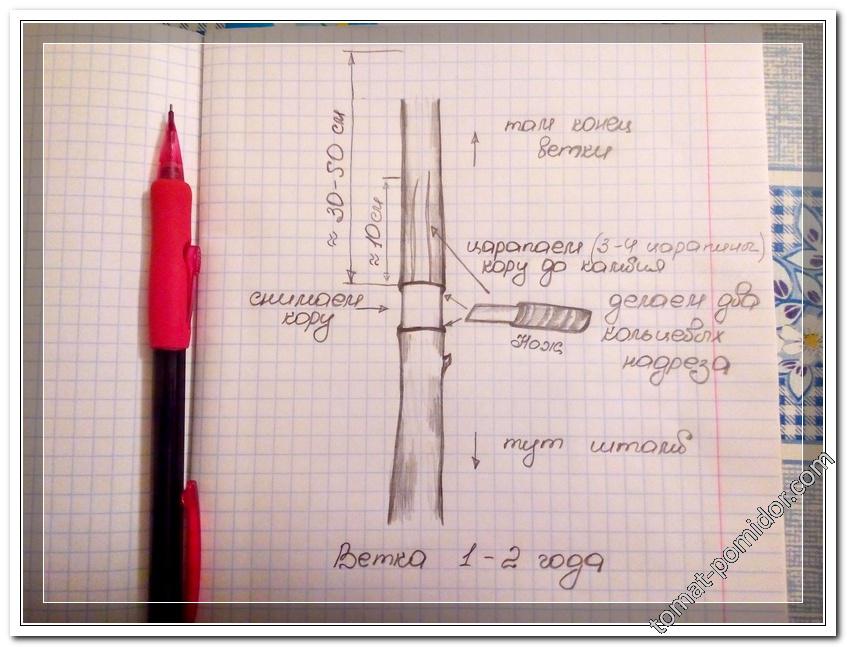 там конец
ветки
≈ 30-50 см
≈ 10 см
царапаем (3-4 царапины)
кору до камбия
снимаем
кору
делаем два
кольцевых
надреза
Нож
тут штамб
Ветка 1-2 года
tomat-pomidor.com